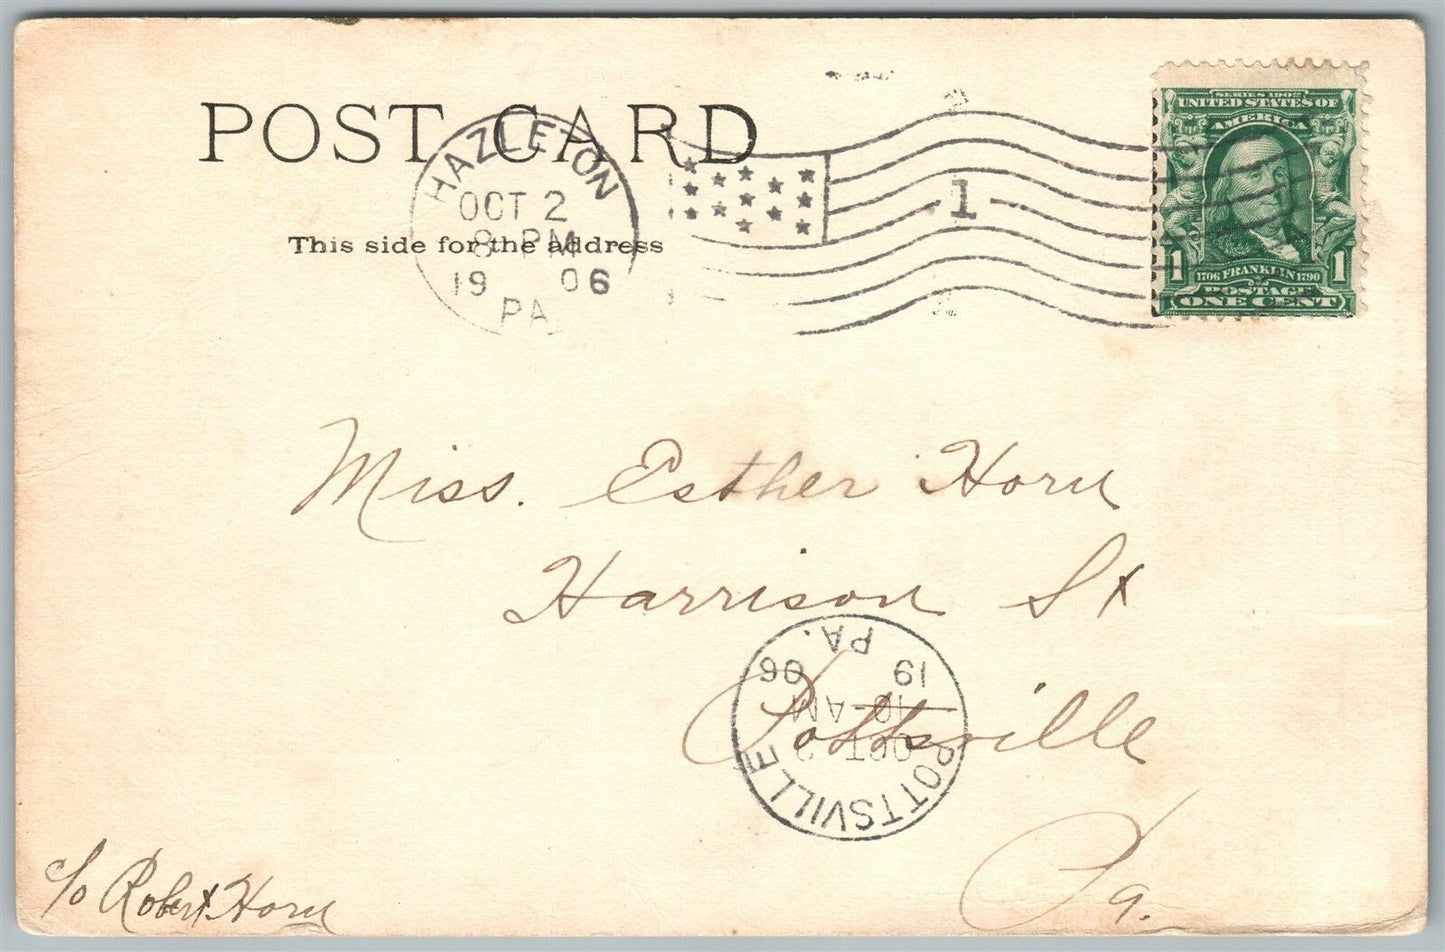 POST CARD
This side for the address
HAZLETON
OCT 2
8 PM
19 06
PA
1
SERIES 1902
UNITED STATES OF
AMERICA
1 1706 FRANKLIN 1790 1
POSTAGE
ONE CENT
Miss. Esther Horn
Harrison St
Pottsville
Pa.
c/o Robert Horn
POTTSVILLE
OCT
10-AM
19 06
PA.